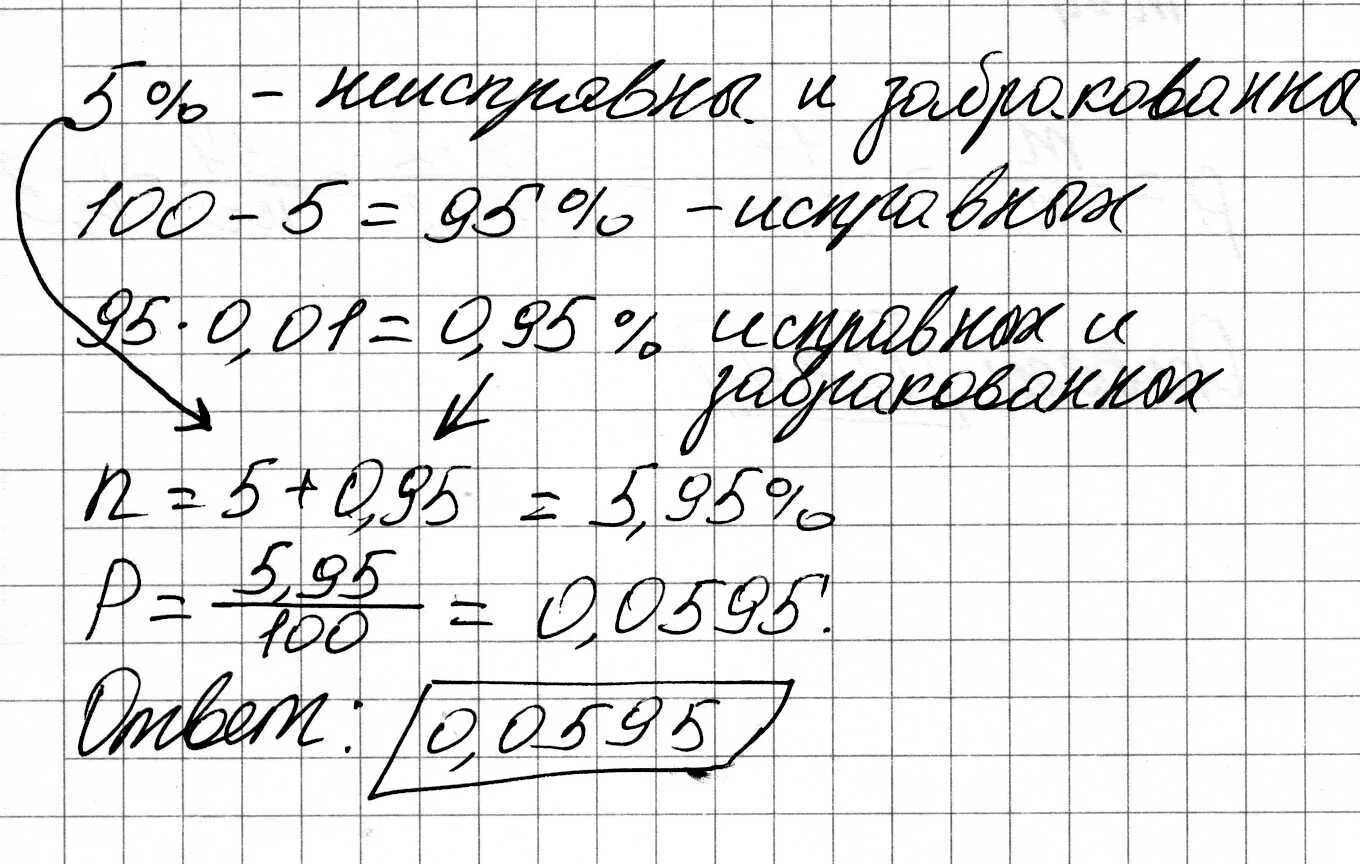 5% - неисправны и забракованны
100 - 5 = 95% - исправных
95 · 0,01 = 0,95% исправных и
забракованных
n = 5 + 0,95 = 5,95%
P = 5,95/100 = 0,0595.
Ответ: 0,0595